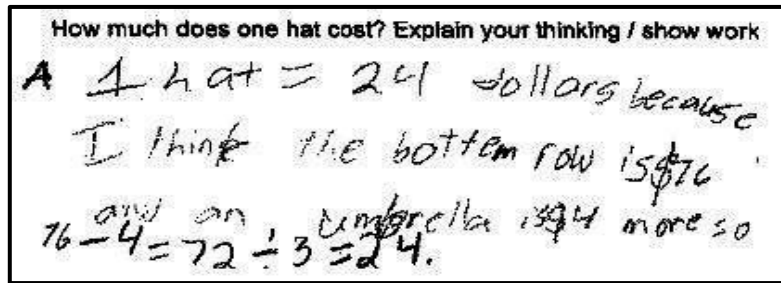 How much does one hat cost? Explain your thinking / show work
A 1 hat = 24 dollars because
I think the bottem row is $76
and an umbrella is $4 more so
76 - 4 = 72 ÷ 3 = 24.